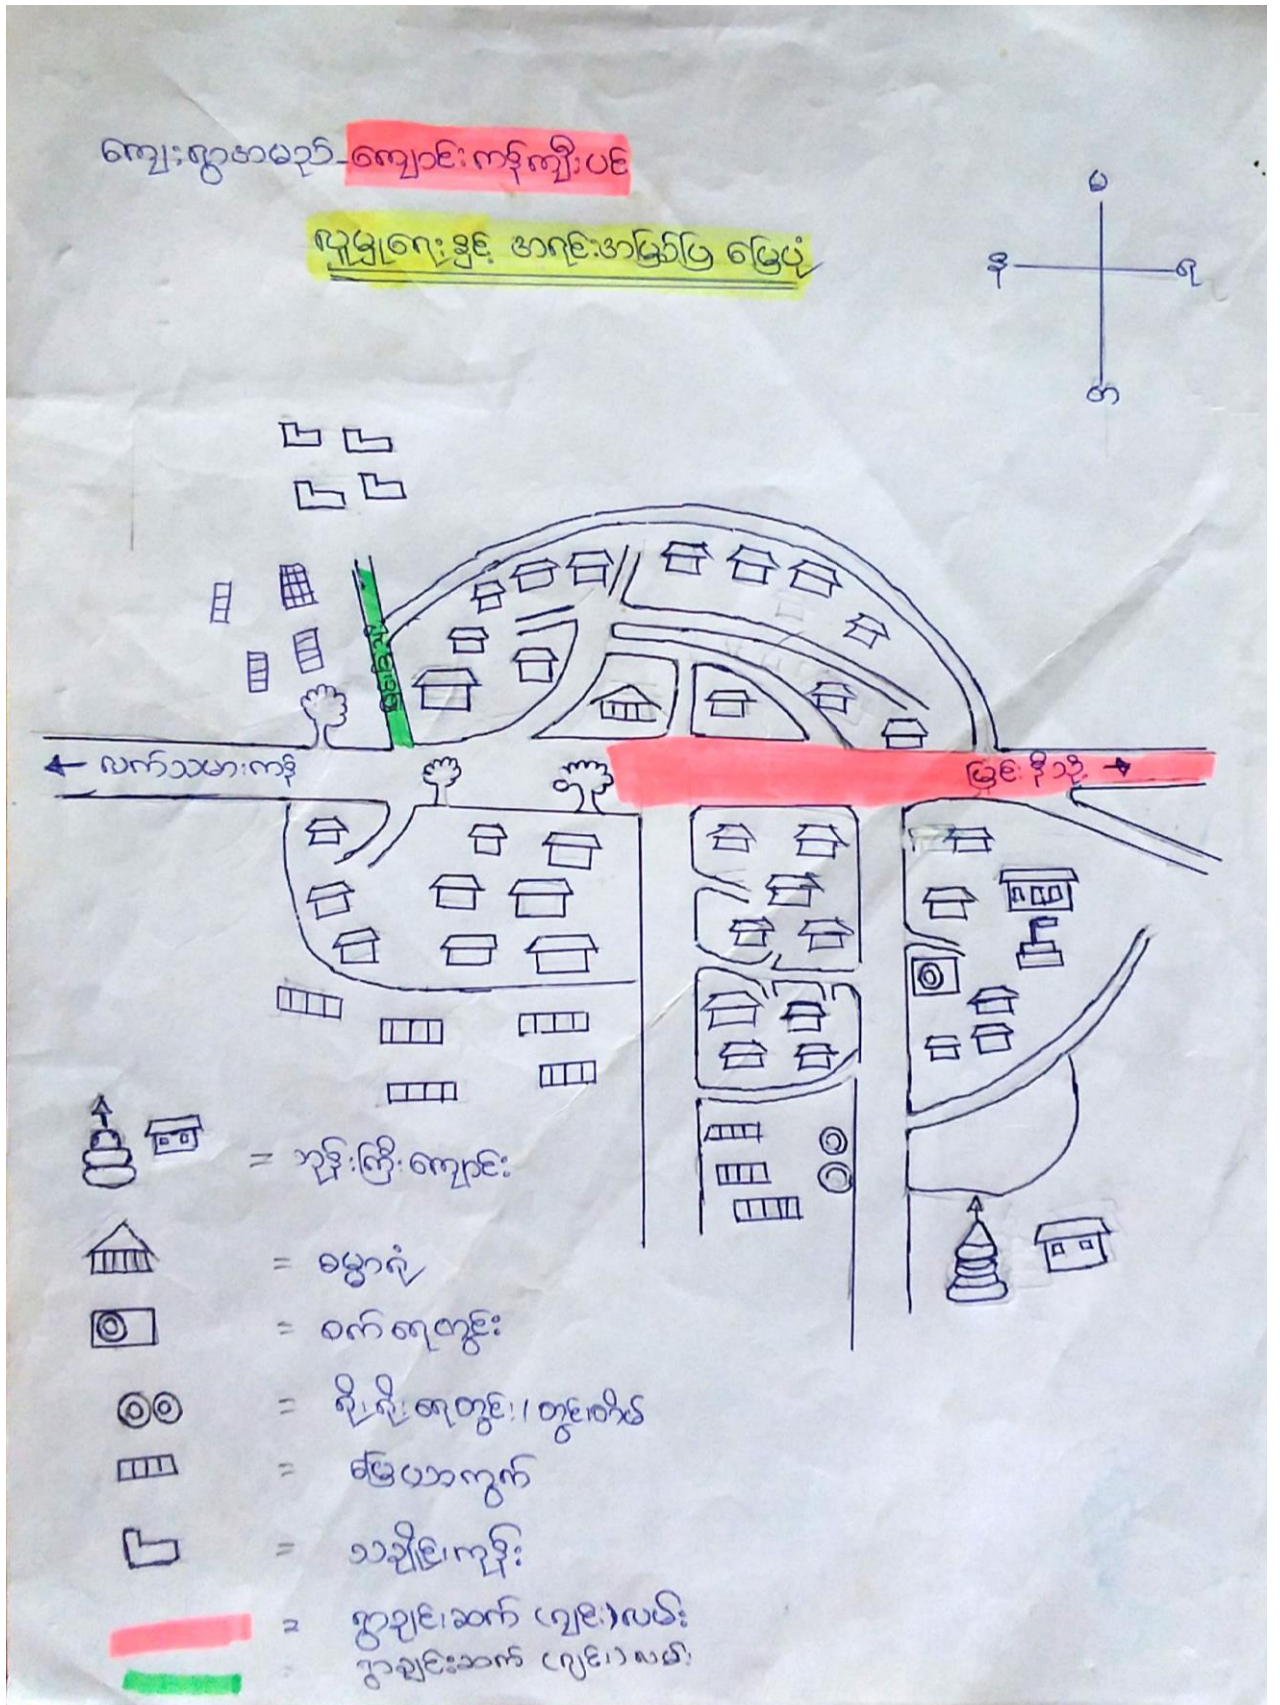 ကျေးရွာအမည်-ကျောင်းကန်ကျီးပင်
လူမှုရေးနှင့် အရင်းအမြစ်ပြ မြေပုံ
မ
န
ရ
တ
← လက်သမားကန်
မြင်းနီသို့ →
= ဘုန်းကြီးကျောင်း
= ဓမ္မာရုံ
= စက်ရေတွင်း
= ရိုးရိုးရေတွင်း/တွင်းတိမ်
= မြေပဲအကွက်
= သချိုင်းကုန်း
= ရွာချင်းဆက် (ဂျင်း) လမ်း
= ရွာချင်းဆက် (ဂျင်း) လမ်း